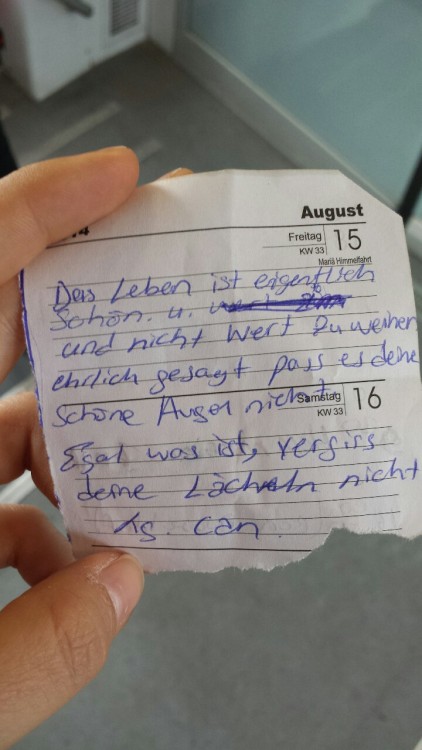 14
August
Freitag 15
KW 33
Mariä Himmelfahrt
Das Leben ist eigentlich
Schön. u.
und nicht Wert zu weinen
ehrlich gesagt pass es deine
Schöne Augen nicht
Samstag 16
KW 33
Egal was ist, vergiss
deine Lächeln nicht
can.